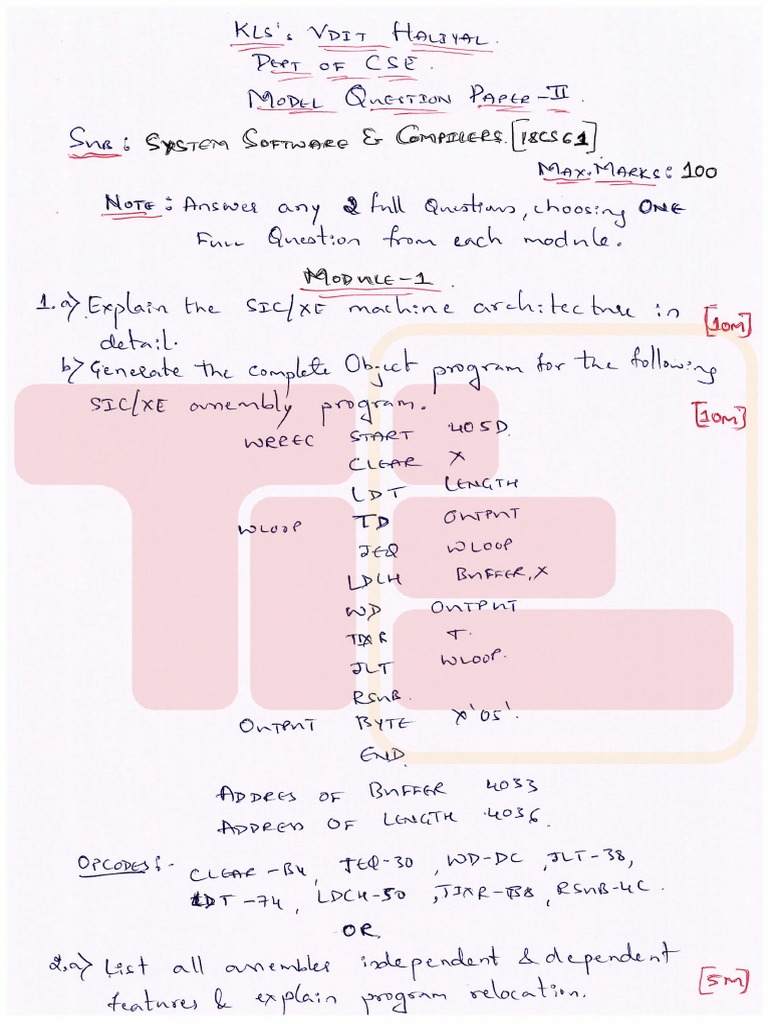 KLS's VDIT HALIYAL.
DEPT OF CSE.
MODEL QUESTION PAPER-II.
SUB: SYSTEM SOFTWARE & COMPILERS. [18CS61]
MAX. MARKS: 100
NOTE: Answer any 2 full Questions, choosing ONE
Full Question from each module.
MODULE-1.
1.a) Explain the SIC/XE machine architecture in
detail. [10M]
b) Generate the complete Object program for the following
SIC/XE assembly program. [10M]
WRREC START 405D.
CLEAR X
LDT LENGTH
WLOOP TD OUTPUT
JEQ WLOOP
LDCH BUFFER,X
WD OUTPUT
TIXR T.
JLT WLOOP.
RSUB.
OUTPUT BYTE X'05'.
END.
ADDRES OF BUFFER 4033
ADDRESS OF LENGTH 4036.
OPCODES:- CLEAR-B4, JEQ-30, WD-DC, JLT-38,
LDT-74, LDCH-50, TIXR-B8, RSUB-4C.
OR
2.a) List all assembler independent & dependent
features & explain program relocation. [5M]
TIE